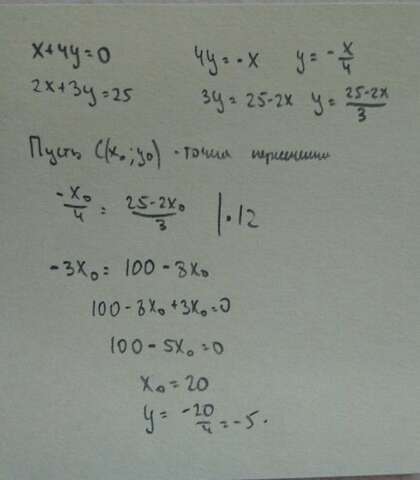 x+4y=0 4y=-x y=-x/4
2x+3y=25 3y=25-2x y=25-2x/3
Пусть C(x₀;y₀) - точка пересечения
-x₀/4 = 25-2x₀/3 |·12
-3x₀=100-8x₀
100-8x₀+3x₀=0
100-5x₀=0
x₀=20
y=-20/4=-5.